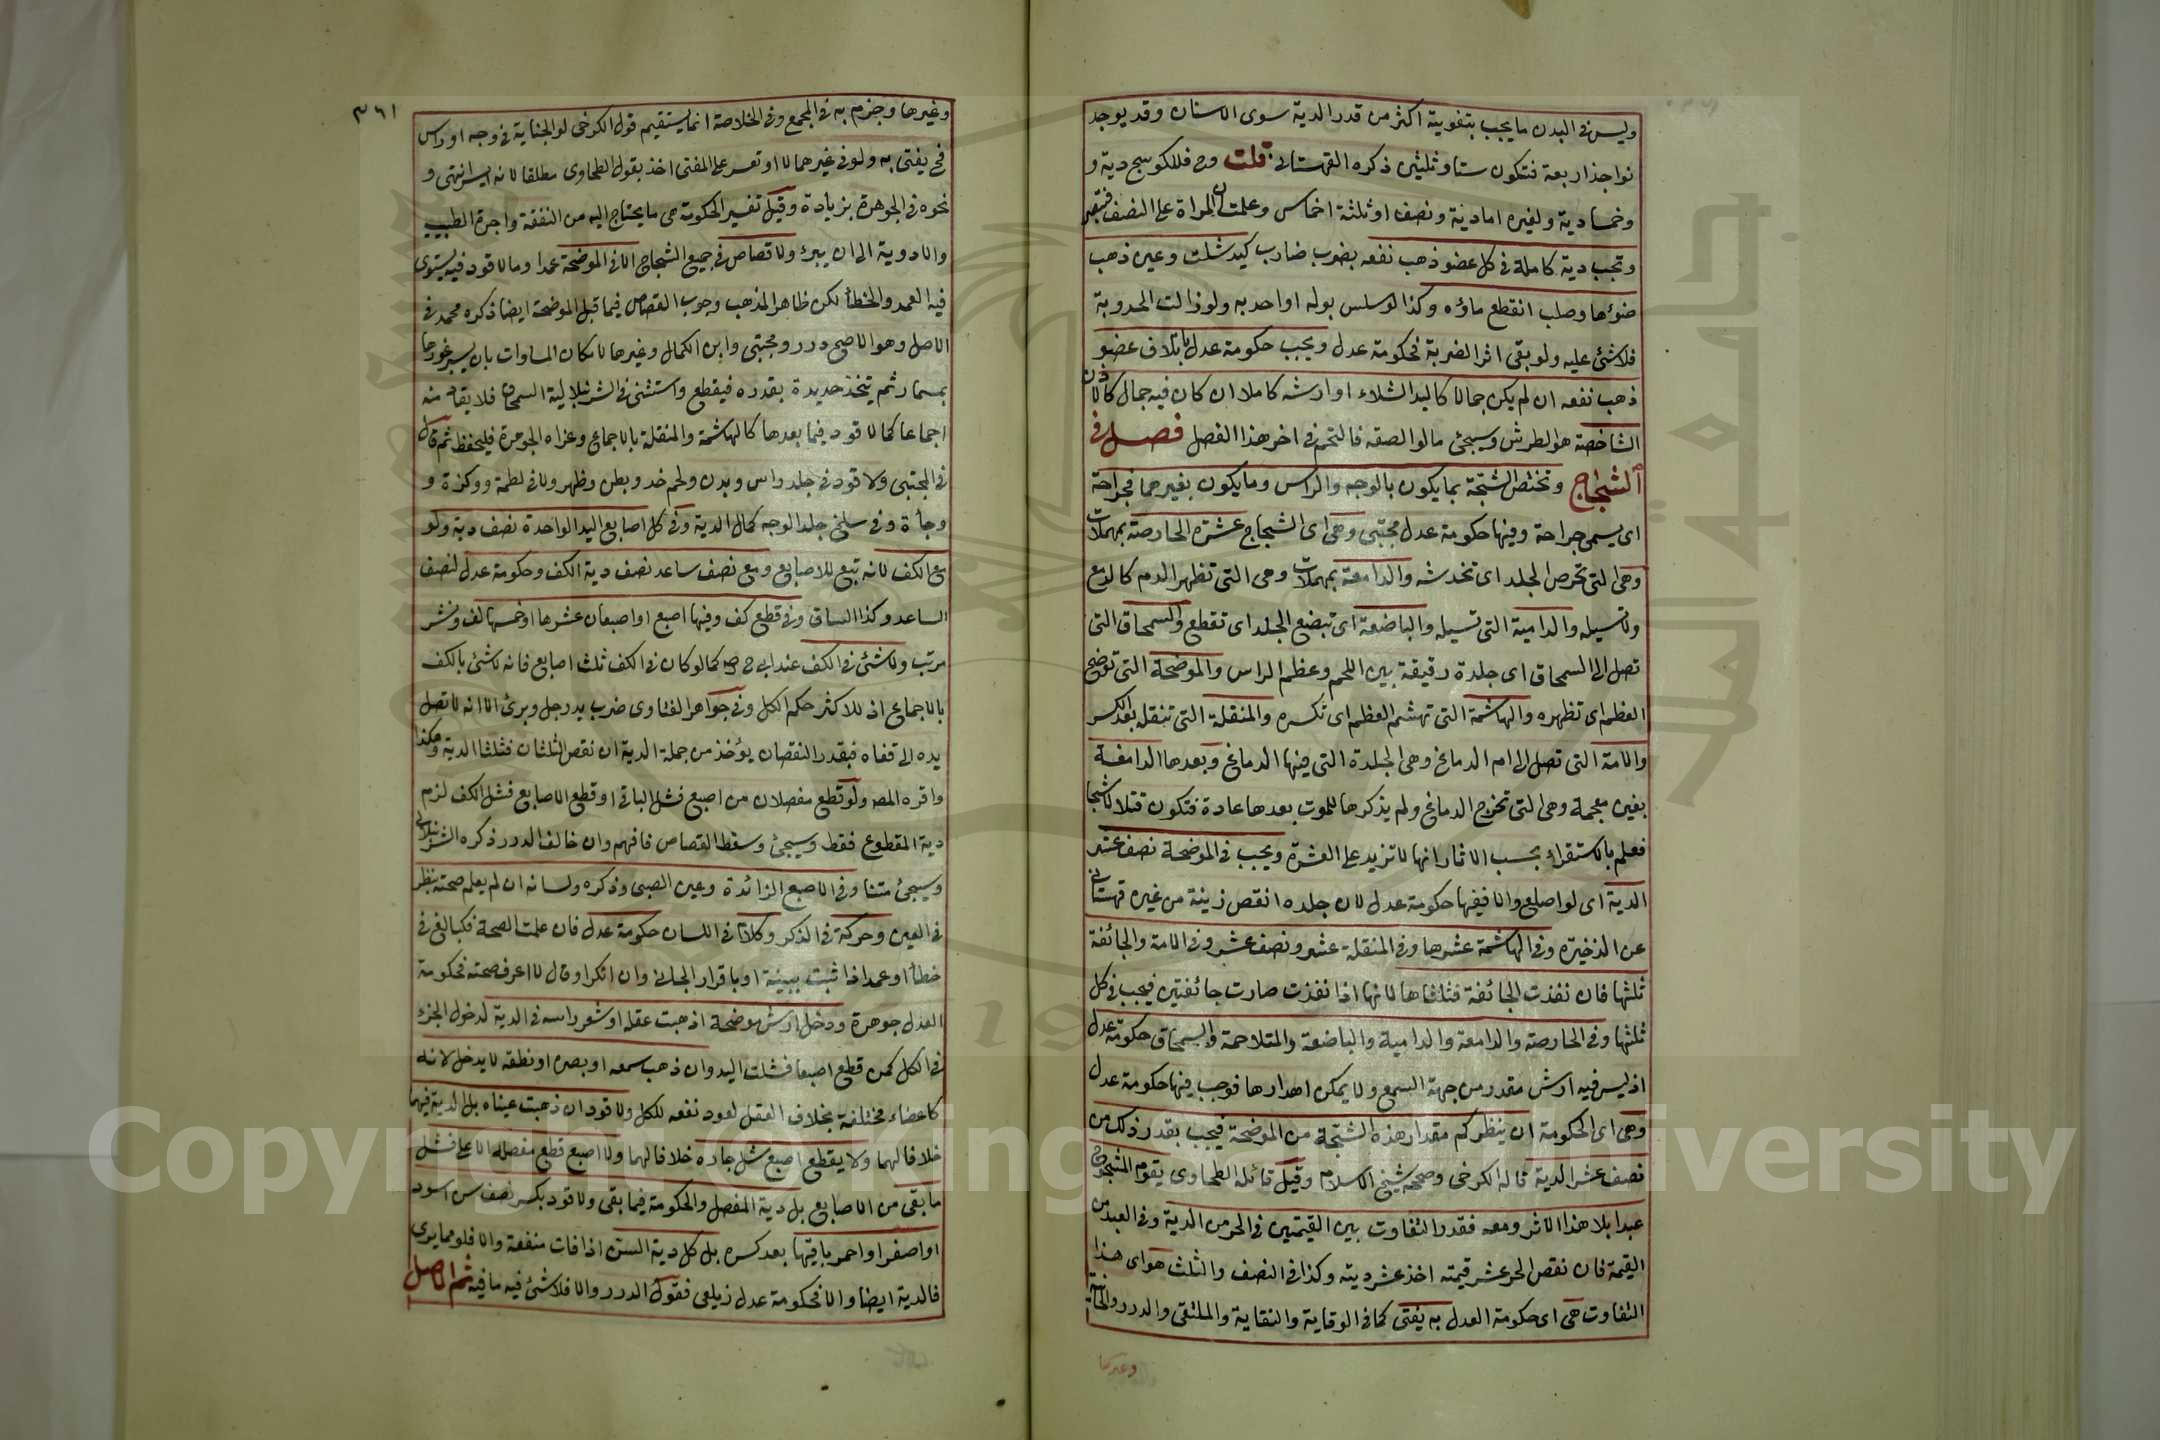 وليس في البدن ما يجب بتفويته اكثر من قدر الدية سوى الاسنان وقد يوجد
نواجذ اربعة فتكون ستا وثلثين ذكره القهستاني قلت وح فللكوسج دية و
وخمسا دية ولغيره اما دية ونصف او ثلثة اخماس وعلمت ان المراة على النصف فتبصر
وتجب دية كاملة في كل عضو ذهب نفعه بضرب ضارب كيد شلت وعين ذهب
ضوءها وصلب انقطع ماؤه وكذا لو سلس بوله او احدبه ولو زالت الحدوبة
فلا شئ عليه ولو بقى اثر الضربة فحكومة عدل ويجب حكومة عدل باتلاف عضو
ذهب نفعه ان لم يكن جمالا كاليد الشلاء او ارشه كاملا ان كان فيه جمال كالاذن
الشاخصة هو الطرش وسيجئ ما لو الصقه فالتحم في اخر هذا الفصل فصل في
الشجاج وتختص الشجة بما يكون بالوجه والراس وما يكون بغيرهما فجراحة
اى يسمى جراحة وفيها حكومة عدل مجتبى وهى اى الشجاج عشرة الحارصة بمهملات
وهى التى تحرص الجلد اى تخدشه والدامعة بمهملات وهى التى تظهر الدم كالدمع
ولا تسيله والدامية التى تسيله والباضعة اى تبضع الجلد اى تقطع والسمحاق التى
تصل الى السمحاق اى جلدة رقيقة بين اللحم وعظم الراس والموضحة التى توضح
العظم اى تظهره والهاشمة التى تهشم العظم اى تكسره والمنقلة التى تنقله بعد الكسر
والامة التى تصل الى ام الدماغ وهى الجلدة التى فيها الدماغ وبعدها الدامغة
بغين معجمة وهى التى تخرج الدماغ ولم يذكرها للموت بعدها عادة فتكون قتلا لا شجا
فعلم بالاستقراء بحسب الاثار انها لا تزيد على العشرة ويجب في الموضحة نصف عشر
الدية اى لو اصلع والا ففيها حكومة عدل لان جلده انقص زينة من غيره قهستانى
عن الذخيرة وفى الهاشمة عشرها وفى المنقلة عشر ونصف عشر وفى الامة والجائفة
ثلثها فان نفذت الجائفة فثلثاها لانها اذا نفذت صارت جائفتين فيجب في كل
ثلثها وفى الحارصة والدامعة والدامية والباضعة والمتلاحمة والسمحاق حكومة عدل
اذ ليس فيه ارش مقدر من جهة السمع ولا يمكن اهدارها فوجب فيها حكومة عدل
وهى اى الحكومة ان ينظر كم مقدار هذه الشجة من الموضحة فيجب بقدر ذلك من
نصف عشر الدية قاله الكرخى وصححه شيخ الاسلام وقيل قائله الطحاوى يقوم المشجوج
عبدا بلا هذا الاثر ومعه فقدر التفاوت بين القيمتين في الحر من الدية وفى العبد من
القيمة فان نقص الحر عشر قيمته اخذ عشر ديته وكذا في النصف والثلث هو اى هذا
التفاوت هى اى حكومة العدل به يفتى كما في الوقاية والنقاية والملتقى والدرر والخانية
وغيرها
٣٦١
وغيرها وجزم به في المجمع وفى الخلاصة انما يستقيم قول الكرخى لو الجناية في وجه او راس
فح يفتى به ولو فى غيرهما لا او تعسر على المفتى اخذ بقول الطحاوى مطلقا لانه ايسر انتهى و
نحوه في الجوهرة بزيادة وقيل تفسير الحكومة هى ما يحتاج اليه من النفقة واجرة الطبيب
والادوية الى ان يبرئ ولا قصاص في جميع الشجاج الا في الموضحة عمدا وما لا قود فيه يستوى
فيه العمد والخطأ لكن ظاهر المذهب وجوب القصاص فيما قبل الموضحة ايضا ذكره محمد في
الاصل وهو الاصح درر ومجتبى وابن الكمال وغيرها لامكان المساوات بان يسبر غورها
بمسمار ثم يتخذ حديدة بقدره فيقطع واستثنى في الشرنبلالية السمحاق فلا يقاد منه
اجماعا كما لا قود فيما بعدها كالهاشمة والمنقلة بالاجماع وعزاه الجوهرة فليحفظ ثم قال
في المجتبى ولا قود في جلد راس وبدن ولحم خد وبطن وظهر ولا في لطمة ووكزة و
وجأة وفى سلخ جلد الوجه كمال الدية وفى كل اصابع اليد الواحدة نصف دية ولو
مع الكف لانه تبع للاصابع ومع نصف ساعد نصف دية الكف وحكومة عدل لنصف
الساعد وكذا الساق وفى قطع كف وفيها اصبع او اصبعان عشرها او خمسها لف ونشر
مرتب ولا شئ في الكف عند ابى ح رح كما لو كان في الكف ثلث اصابع فانه لا شئ بالكف
بالاجماع اذ للاكثر حكم الكل وفى جواهر الفتاوى ضرب يد رجل وبرئ الا انه لا تصل
يده الى قفاه فبقدر النقصان يؤخذ من جملة الدية ان نقص الثلثان فثلثا الدية وهكذا
واقره المص ولو قطع مفصلان من اصبع فشل الباقى او قطع الاصابع فشل الكف لزم
دية المقطوع فقط وسيجئ وسقط القصاص فافهم وان خالف الدرر ذكره الشرنبلالى
وسيجئ متنا وفى الاصبع الزائدة وعين الصبى وذكره ولسانه ان لم يعلم صحته بنظر
في العين وحركة في الذكر وكلام في اللسان حكومة عدل فان علمت الصحة فكبالغ في
خطأ او عمد اذا ثبت ببينة او باقرار الجانى وان انكر او قال لا اعرف صحته فحكومة
العدل جوهرة ودخل ارش موضحة اذهبت عقله او شعر راسه في الدية لدخول الجزء
في الكل كمن قطع اصبعا فشلت اليد وان ذهب سمعه او بصره او نطقه لا يدخل لانه
كاعضاء مختلفة بخلاف العقل لعود نفعه للكل ولا قود ان ذهبت عيناه بل الدية فيهما
خلافا لهما ولا يقطع اصبع شل جاره خلافا لهما ولا اصبع قطع مفصله الاعلى فشل
ما بقى من الاصابع بل دية المفصل والحكومة فيما بقى ولا قود بكسر نصف سن اسود
او اصفر او احمر باقيها بعد كسره بل كل دية السن اذا فات منفعة والا فلو مما يرى
فالدية ايضا والا فحكومة عدل زيلعى فقول الدرر والا فلا شئ فيه ما فيه ثم الاصل
Copyright © King Saud University